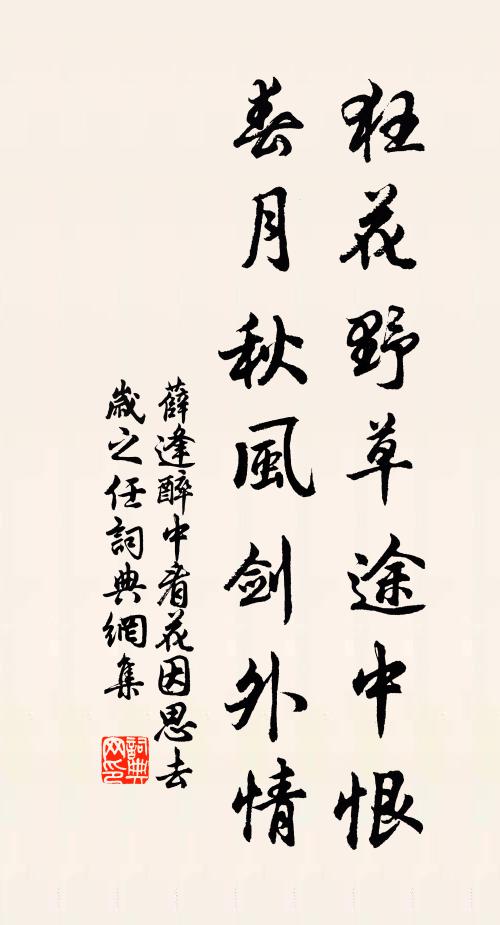 狂花野草途中恨
春月秋風剑外情
薛逢醉中看花因思去
歲之任詞典網集
詞典
网印